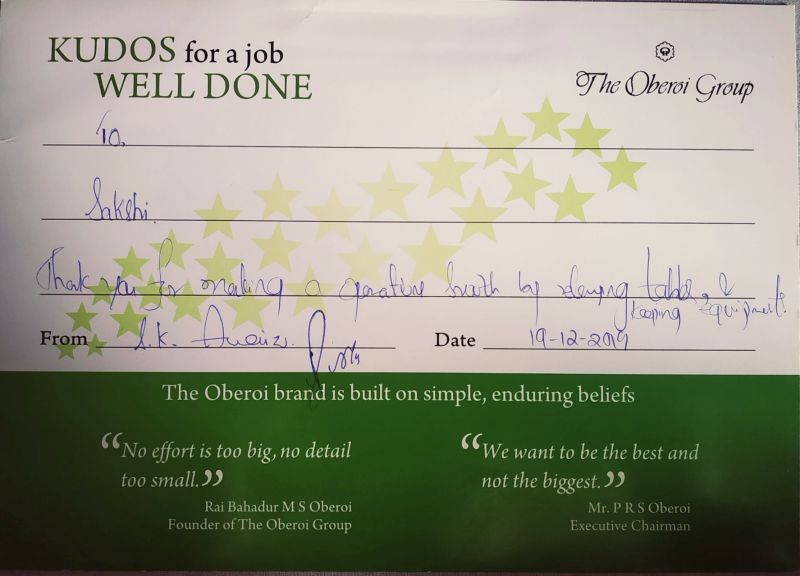 KUDOS for a job
WELL DONE
The Oberoi Group
To,
Sakshi.
Thank you for making a operative by tables, &
keeping equipments.
From S.K.
Date 19-12-2019
The Oberoi brand is built on simple, enduring beliefs
“No effort is too big, no detail
too small.”
Rai Bahadur M S Oberoi
Founder of The Oberoi Group
“We want to be the best and
not the biggest.”
Mr. P R S Oberoi
Executive Chairman